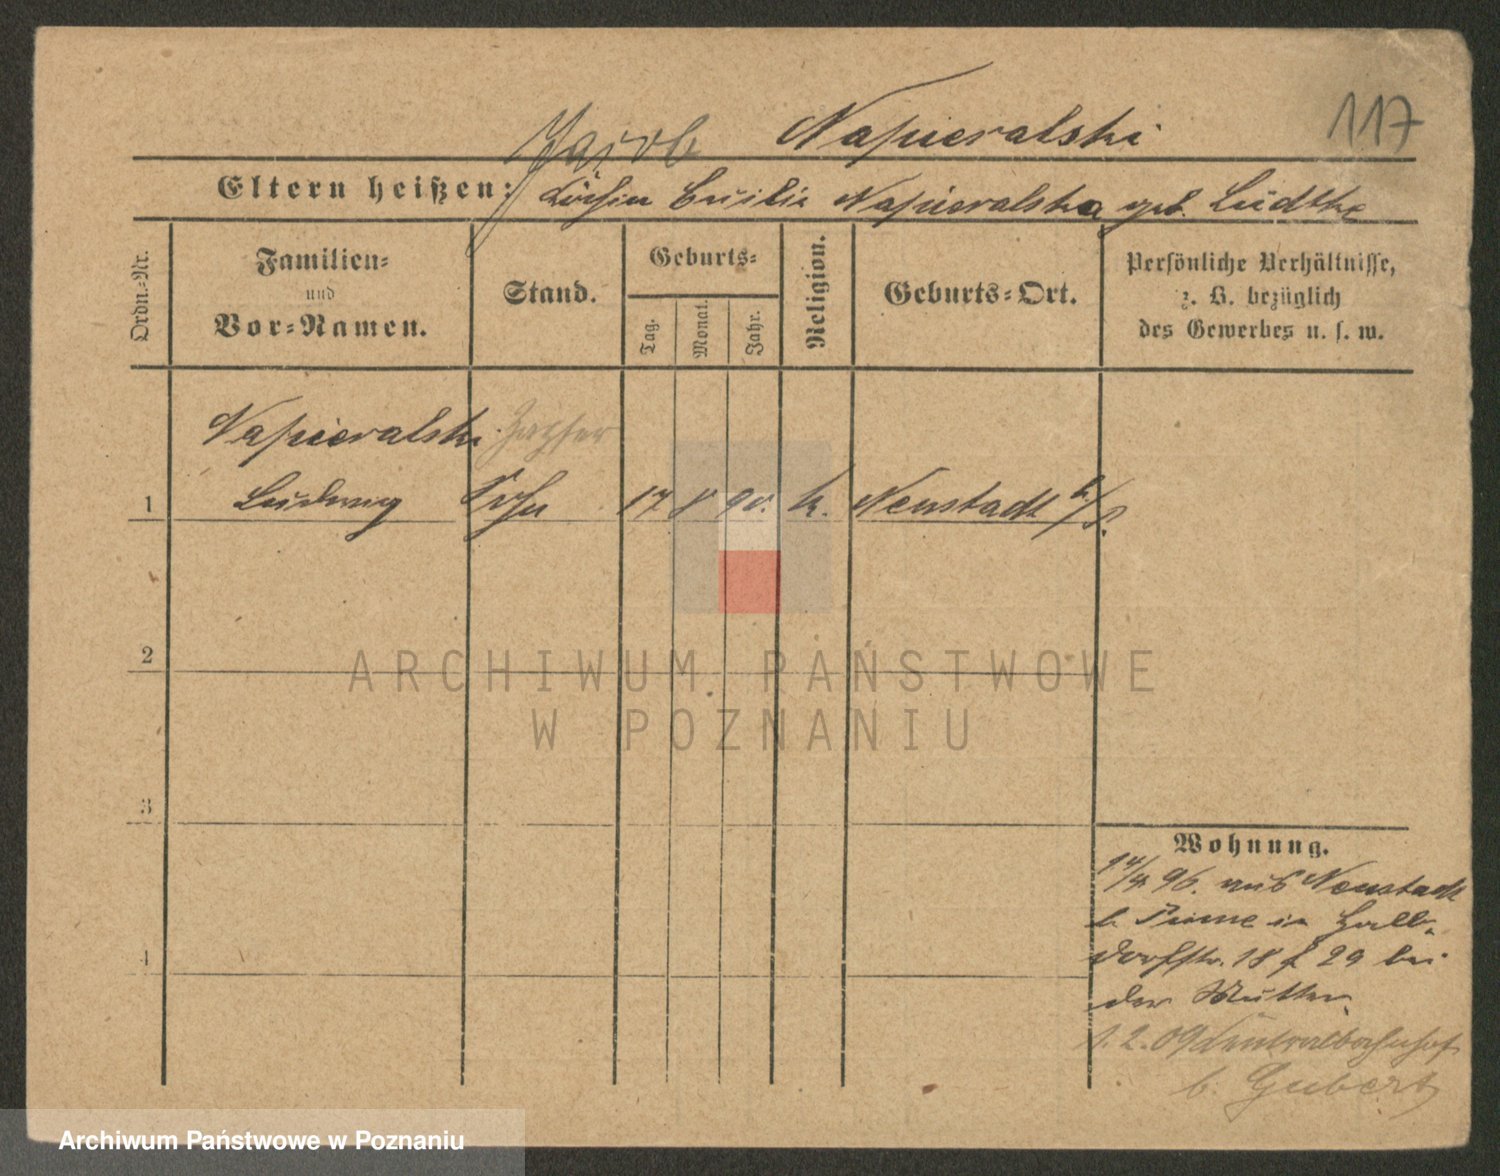 117
Jacob Napieralski
Eltern heißen: Köchin Cecilie Napieralska geb. Lüdtke
Ordn.-Nr.
Familien-
und
Vor-Namen.
Stand.
Geburts-
Tag.
Monat.
Jahr.
Religion.
Geburts-Ort.
Persönliche Verhältnisse,
z. B. bezüglich
des Gewerbes u. s. w.
Napieralski
1 Ludwig Sohn 17 8 90. k. Neustadt b/P.
2
3
4
Wohnung.
14/4 96. aus Neustadt
b. Pinne in Hall-
dorfstr. 18 f 29 bei
der Mutter.
1.2.09 Centralbahnhof
b. Gubert
ARCHIWUM PAŃSTWOWE
W POZNANIU
Archiwum Państwowe w Poznaniu